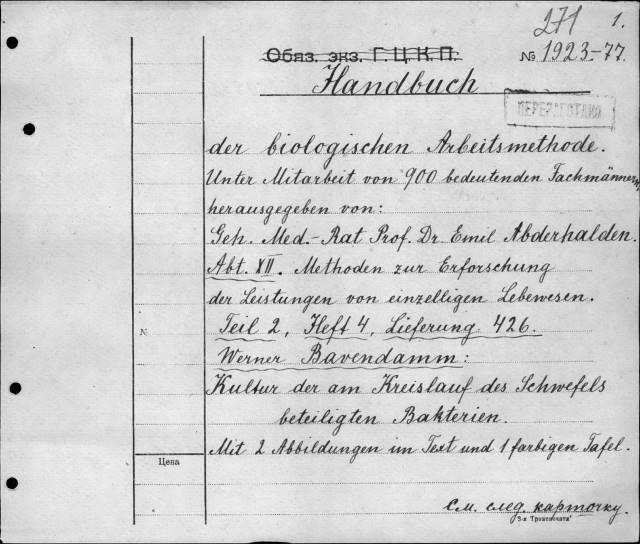 271 1.
Обяз. экз. Г.Ц.К.П. № 1923-77.
Handbuch
ПЕРЕРАБОТАНО
der biologischen Arbeitsmethode.
Unter Mitarbeit von 900 bedeutenden Fachmänner
herausgegeben von:
Geh. Med.-Rat Prof. Dr. Emil Abderhalden.
Abt. XII. Methoden zur Erforschung
der Leistungen von einzelligen Lebewesen.
N: Teil 2, Heft 4, Lieferung 426.
Werner Bavendamm:
Kultur der am Kreislauf des Schwefels
beteiligten Bakterien.
Mit 2 Abbildungen im Text und 1 farbigen Tafel.
Цена
См. след. карточку.